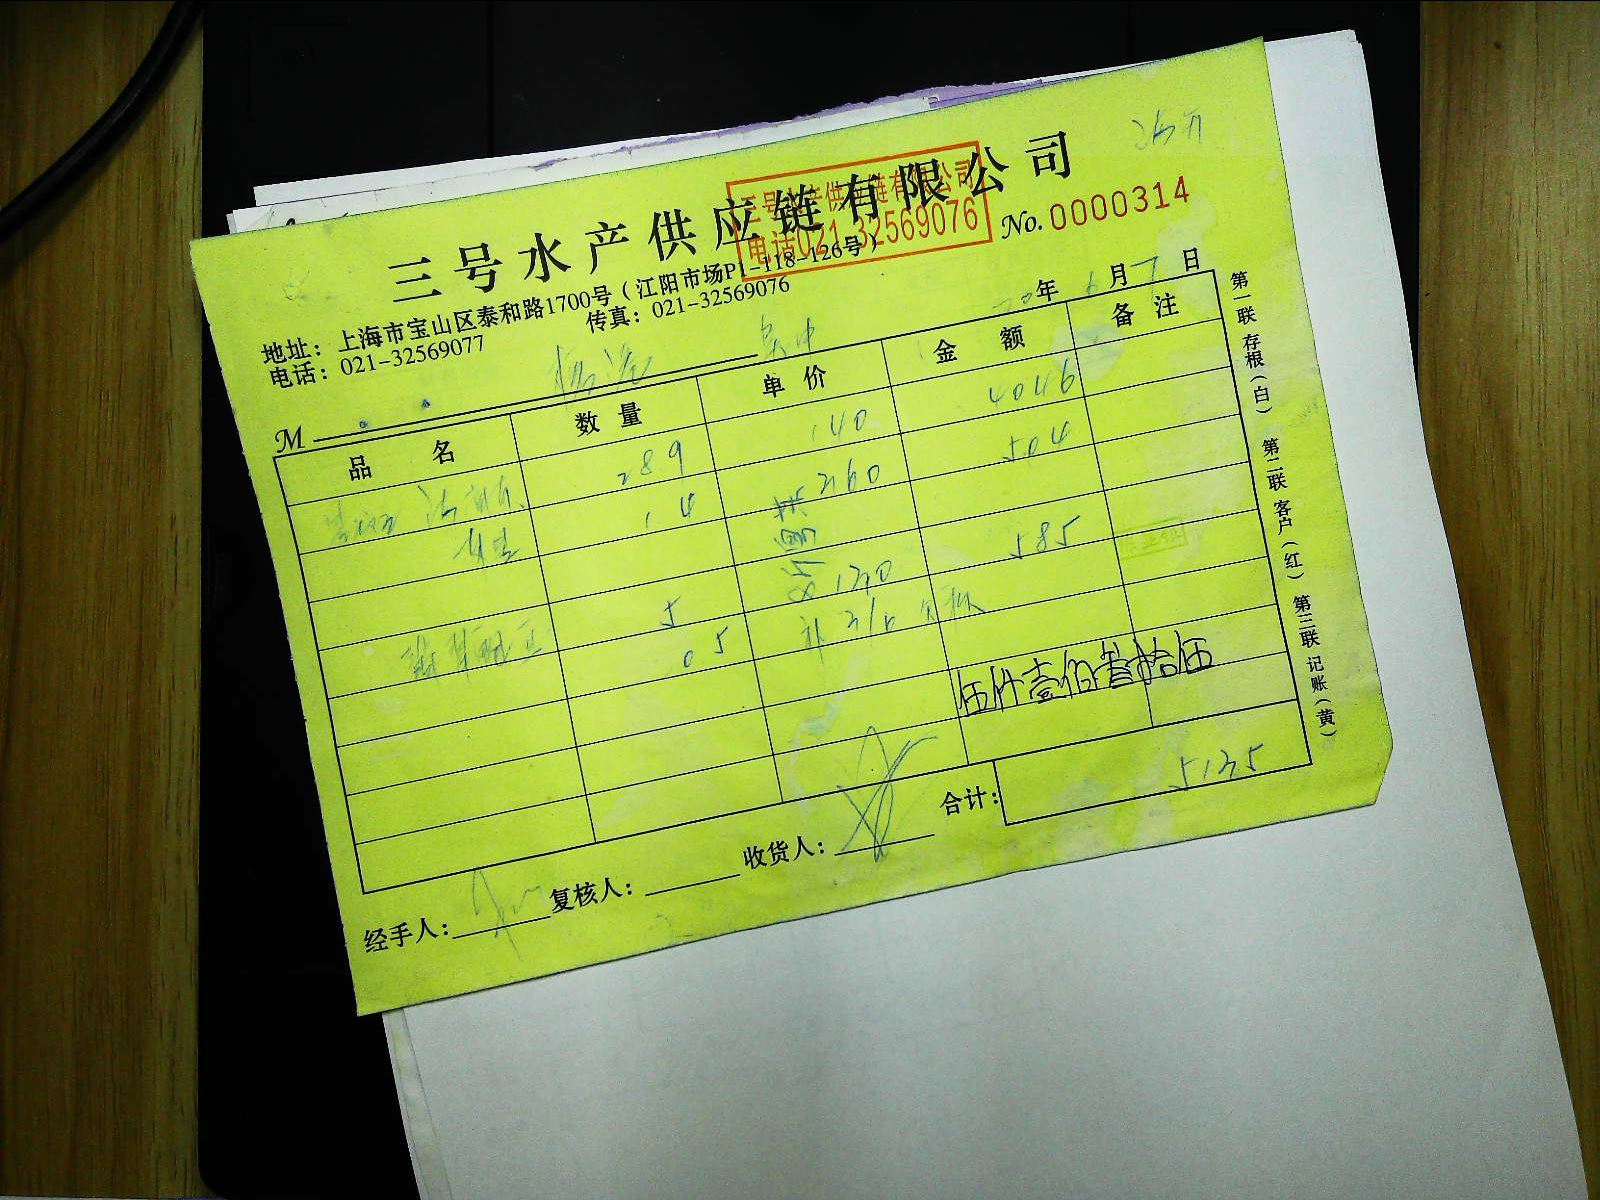 三号水产供应链有限公司
三号水产供应链有限公司
电话021-32569076
No. 0000314
地址：上海市宝山区泰和路1700号（江阳市场P1-118-126号）
电话：021-32569077 传真：021-32569076
20年6月7日
M
品名 数量 单价 金额 备注
289 140 4046
14 360 504
5 130 585
05
伍仟壹佰叁拾伍
合计： 5135
经手人： 复核人： 收货人：
第一联 存根（白） 第二联 客户（红） 第三联 记账（黄）